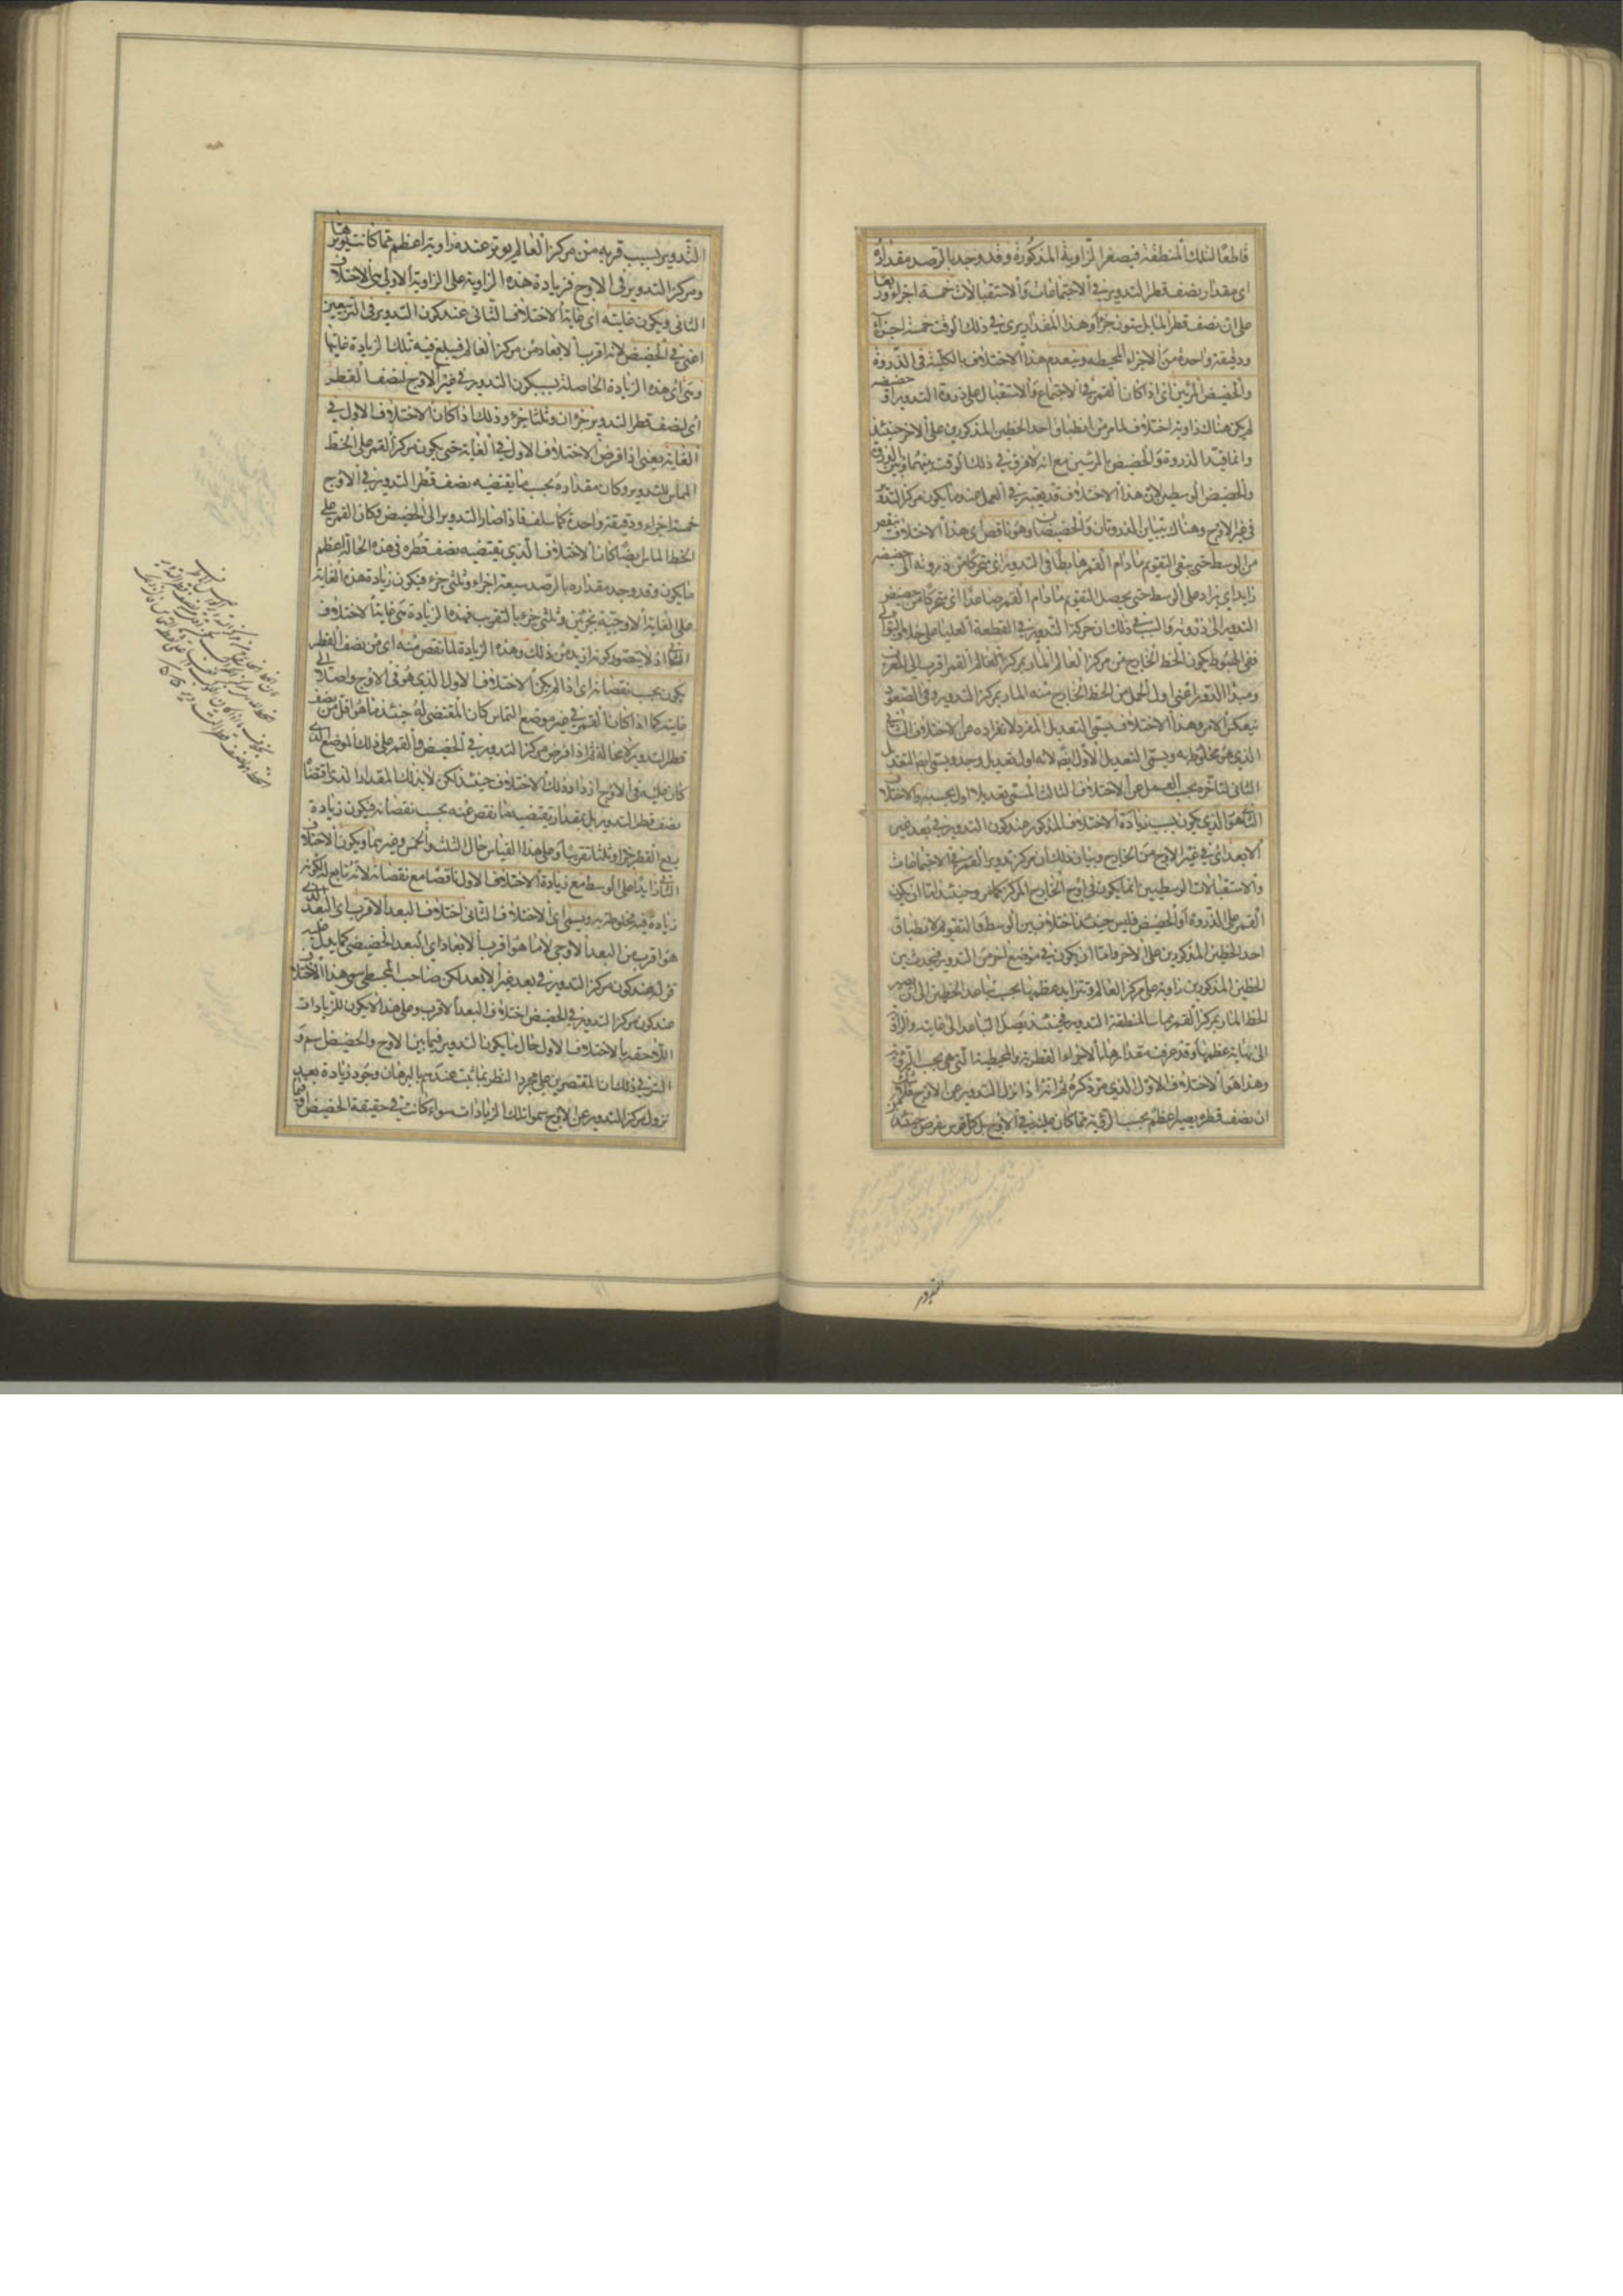 قاطعًا لتلك المنطقة فيصغر الزاوية المذكورة وقد وجد بالرصد مقداره
اى مقدار نصف قطر التدوير فى الاجتماعات والاستقبالات خمسة اجزاء وربعًا
على ان نصف قطر المايل ستون جزأ وهذا المقدار يرى فى ذلك الوقت خمسة اجزاء
ودقيقة واحدة من الاجزاء المحيطه وينعدم هذا الاختلاف بالكلية فى الذروة
والحضيض المرئيين اى اذا كان القمر فى الاجتماع والاستقبال على ذروة التدوير او حضيضه
لم يكن هناك زاوية اختلاف لما مر من انطباق احد الخطين المذكورين على الاخر حينئذ
وانما قيّد الذروة والحضيض بالمرئيين مع انه لا فرق فى ذلك الوقت بينهما وبين الذروة
والحضيض الوسطيين لان هذا الاختلاف قد يعتبر فى العمل عند ما يكون مركز التدوير
فى غير الاوج وهناك يتباين الذروتان والحضيضان وهو ناقص اى هذا الاختلاف ينقص
من الوسط حتى يبقى التقويم ما دام القمر هابطًا فى التدوير اى متحركا من ذروته الى حضيضه
زايد اى يزاد على الوسط حتى يحصل التقويم ما دام القمر صاعدًا اى متحركا من حضيض
التدوير الى ذروته والسبب فى ذلك ان حركة التدوير فى القطعة العليا على خلاف التوالى
ففى الهبوط يكون الخط الخارج من مركز العالم المار بمركز القمر اقرب الى المغرب
ومبدأ الدور اعنى اول الحمل من الخط الخارج منه المار بمركز التدوير وفى الصعود
ينعكس الامر وهذا الاختلاف يسمى التعديل المفرد لانفراده عن الاختلاف الثانى
الذى هو مخلوط به ويسمى التعديل الاول ايضًا لانه اول تعديل وجد ويسمى ايضًا التعديل
الثانى لتأخره بحسب العمل عن الاختلاف الثالث المسمى تعديلا اول بحسبه والاختلاف
الثانى هو الذى يكون بسبب زيادة الاختلاف المذكور عند كون التدوير فى بُعد غير
الابعد اى فى غير الاوج من الخارج وبيان ذلك ان مركز تدوير القمر فى الاجتماعات
والاستقبالات الوسطيين انما يكون فى اوج الخارج المركز كما مر وحينئذ اما ان يكون
القمر على الذروة او الحضيض فليس حينئذ اختلاف بين الوسط والتقويم لانطباق
احد الخطين المذكورين على الاخر واما ان يكون فى موضع اخر من التدوير فيحدث بين
الخطين المذكورين زاوية على مركز العالم وتتزايد عظمها بحسب تباعد الخطين الى ان يصير
الخط المار بمركز القمر مماسا لمنطقة التدوير فحينئذ يصل التباعد الى غايته والزاوية
الى نهاية عظمها وقد عرفت مقدارها بالاجزاء القطرية والمحيطية التى هى بحسب الرؤية
وهذا هو الاختلاف الاول الذى مر ذكره ثم انه اذا نزل التدوير عن الاوج
ان نصف قطره يصير اعظم بحسب الرؤية مما كان عليه فى الاوج بل كل قوس يفرض حينئذ
التدوير
التدوير بسبب قربه من مركز العالم يوتر عنده زاوية اعظم مما كانت يوترها
ومركز التدوير فى الاوج فزيادة هذه الزاوية على الزاوية الاولى هى الاختلاف
الثانى ويكون غايته اى غاية الاختلاف الثانى عند كون التدوير فى التربيعين
اعنى فى الحضيض لانه اقرب الابعاد من مركز العالم فيبلغ فيه تلك الزيادة غايتها
وهى اى هذه الزيادة الحاصلة بسبب كون التدوير فى غير الاوج لنصف القطر
اى لنصف قطر التدوير جزآن وثلثا جزء وذلك اذا كان الاختلاف الاول فى
الغاية يعنى اذا فرض الاختلاف الاول فى الغاية حتى يكون مركز القمر على الخط
المماس للتدوير وكان مقداره بحسب ما يقتضيه نصف قطر التدوير فى الاوج
خمسة اجزاء ودقيقة واحدة كما سلف فاذا صار التدوير الى الحضيض وكان القمر على
الخط المماس ايضًا كان الاختلاف الذى يقتضيه نصف قطره فى هذه الحالة اعظم
ما يكون وقد وجد مقداره بالرصد سبعة اجزاء وثلثى جزء فيكون زيادة هذه الغاية
على الغاية الاوجية بجزئين وثلثى جزء بالتقريب فهذه الزيادة هى غاية الاختلاف
الثانى اذ لا يتصور كونه ازيد من ذلك وهذه الزيادة لما نقص منه اى من نصف القطر
يكون بحسب نقصانه اى اذا لم يكن الاختلاف الاول الذى هو فى الاوج واصلا الى
غايته كما اذا كان القمر فى غير موضع التماس كان المقتضى له حينئذ ما هو اقل من نصف
قطر التدوير لا محالة ثم اذا فرض مركز التدوير فى الحضيض والقمر على ذلك الموضع الذى
كان عليه فى الاوج ازداد ذلك الاختلاف حينئذ لكن لا بذلك المقدار الذى اقتضاه
نصف قطر التدوير بل بمقدار يقتضيه ما نقص عنه بحسب نقصانه فيكون زيادة
ربع القطر جزأ وثلثا تقريبًا وعلى هذا القياس حال الثلث والخمس وغيرهما ويكون الاختلاف
الثانى زايدًا على الوسط مع زيادة الاختلاف الاول ناقصًا مع نقصانه لانه تابع له لكونه
زيادة فيه مخلوطة به ويسمى اى الاختلاف الثانى اختلاف البعد الاقرب اى البعد الذى
هو اقرب من البعد الاوجى لا ما هو اقرب الابعاد اى البعد الحضيضى كما يدل عليه
قوله عند كون مركز التدوير فى بعد غير الابعد لكن صاحب المجسطى سمى هذا الاختلاف
عند كون مركز التدوير فى الحضيض اختلاف البعد الاقرب وعلى هذا لا يكون للزيادات
اللاحقة بالاختلاف الاول حال ما يكون التدوير فيما بين الاوج والحضيض اسم و
السر فى ذلك ان المقتصرين على مجرد النظر بما يثبت عندهم بالبرهان وجود زيادة بعد
نزول مركز التدوير عن الاوج سموا تلك الزيادات سواء كانت فى حقيقة الحضيض او فيما